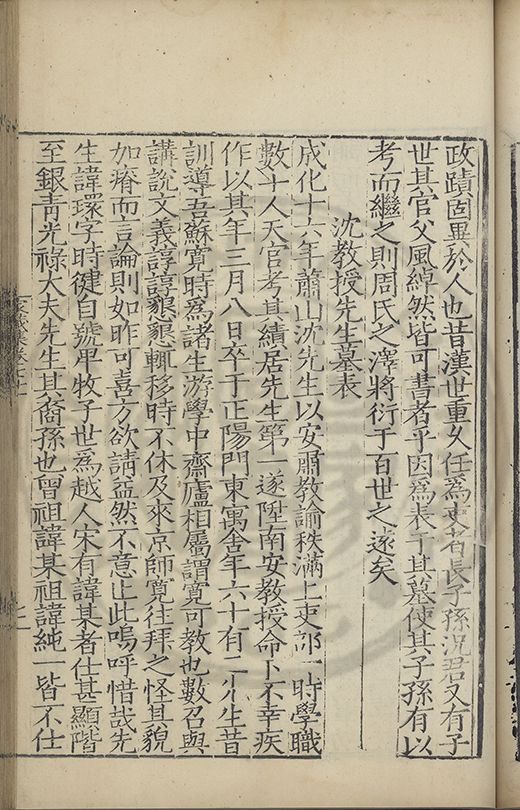 政蹟固異於人也昔漢世重久任為吏者長子孫况君又有子
世其官父風綽然皆可書者乎因為表于其墓使其子孫有以
考而繼之則周氏之澤將衍于百世之遠矣
沈教授先生墓表
成化十六年蕭山沈先生以安肅教諭秩滿上吏部一時學職
數十人天官考其績居先生第一遂陞南安教授命下不幸疾
作以其年三月八日卒于正陽門東寓舍年六十有二先生昔
訓導吾蘇寬時為諸生游學中齋廬相屬謂寬可教也數召與
講說文義諄諄懇懇輒移時不休及來京師寬往拜之怪其貌
加瘠而言論則如昨可喜方欲請益然不意止此嗚呼惜哉先
生諱環字時健自號畢牧子世為越人宋有諱某者仕甚顯階
至銀青光祿大夫先生其裔孫也曾祖諱某祖諱純一皆不仕